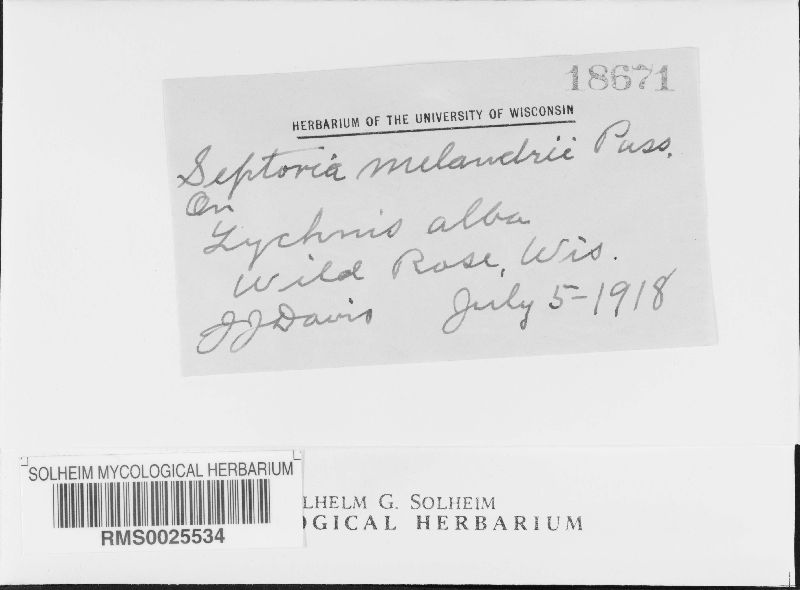 18671
HERBARIUM OF THE UNIVERSITY OF WISCONSIN
Septoria melandrii Pass.
On
Lychnis alba
Wild Rose, Wis.
JJDavis July 5-1918
SOLHEIM MYCOLOGICAL HERBARIUM
RMS0025534
LHELM G. SOLHEIM
OGICAL HERBARIUM